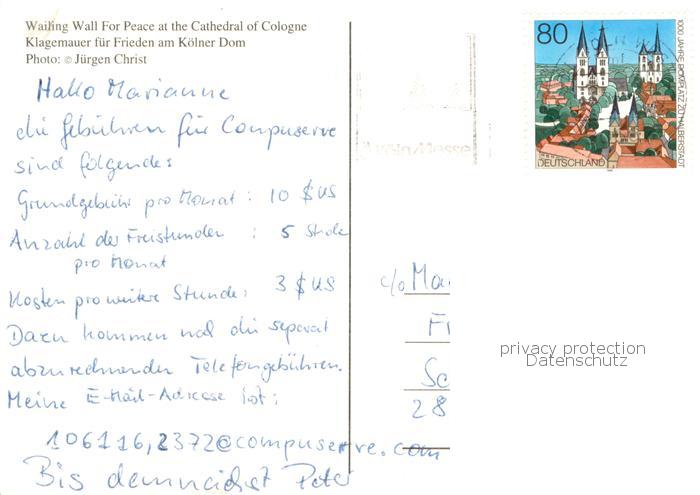 Wailing Wall For Peace at the Cathedral of Cologne
Klagemauer für Frieden am Kölner Dom
Photo: © Jürgen Christ
Hallo Marianne
die Gebühren für Compuserve
sind folgende:
Grundgebühr pro Monat : 10 $ US
Anzahl der Freistunden : 5 Stde
pro Monat
Kosten pro weitere Stunde: 3 $ US
Dazu kommen noch die separat
abzurechnenden Telefongebühren.
Meine E-Mail-Adresse ist:
106116,2372@compuserve.com
Bis demnächst Peter
80
DEUTSCHLAND
1000 JAHRE DOMPLATZ ZU HALBERSTADT
c/o Ma
F
Sc
28
privacy protection
Datenschutz